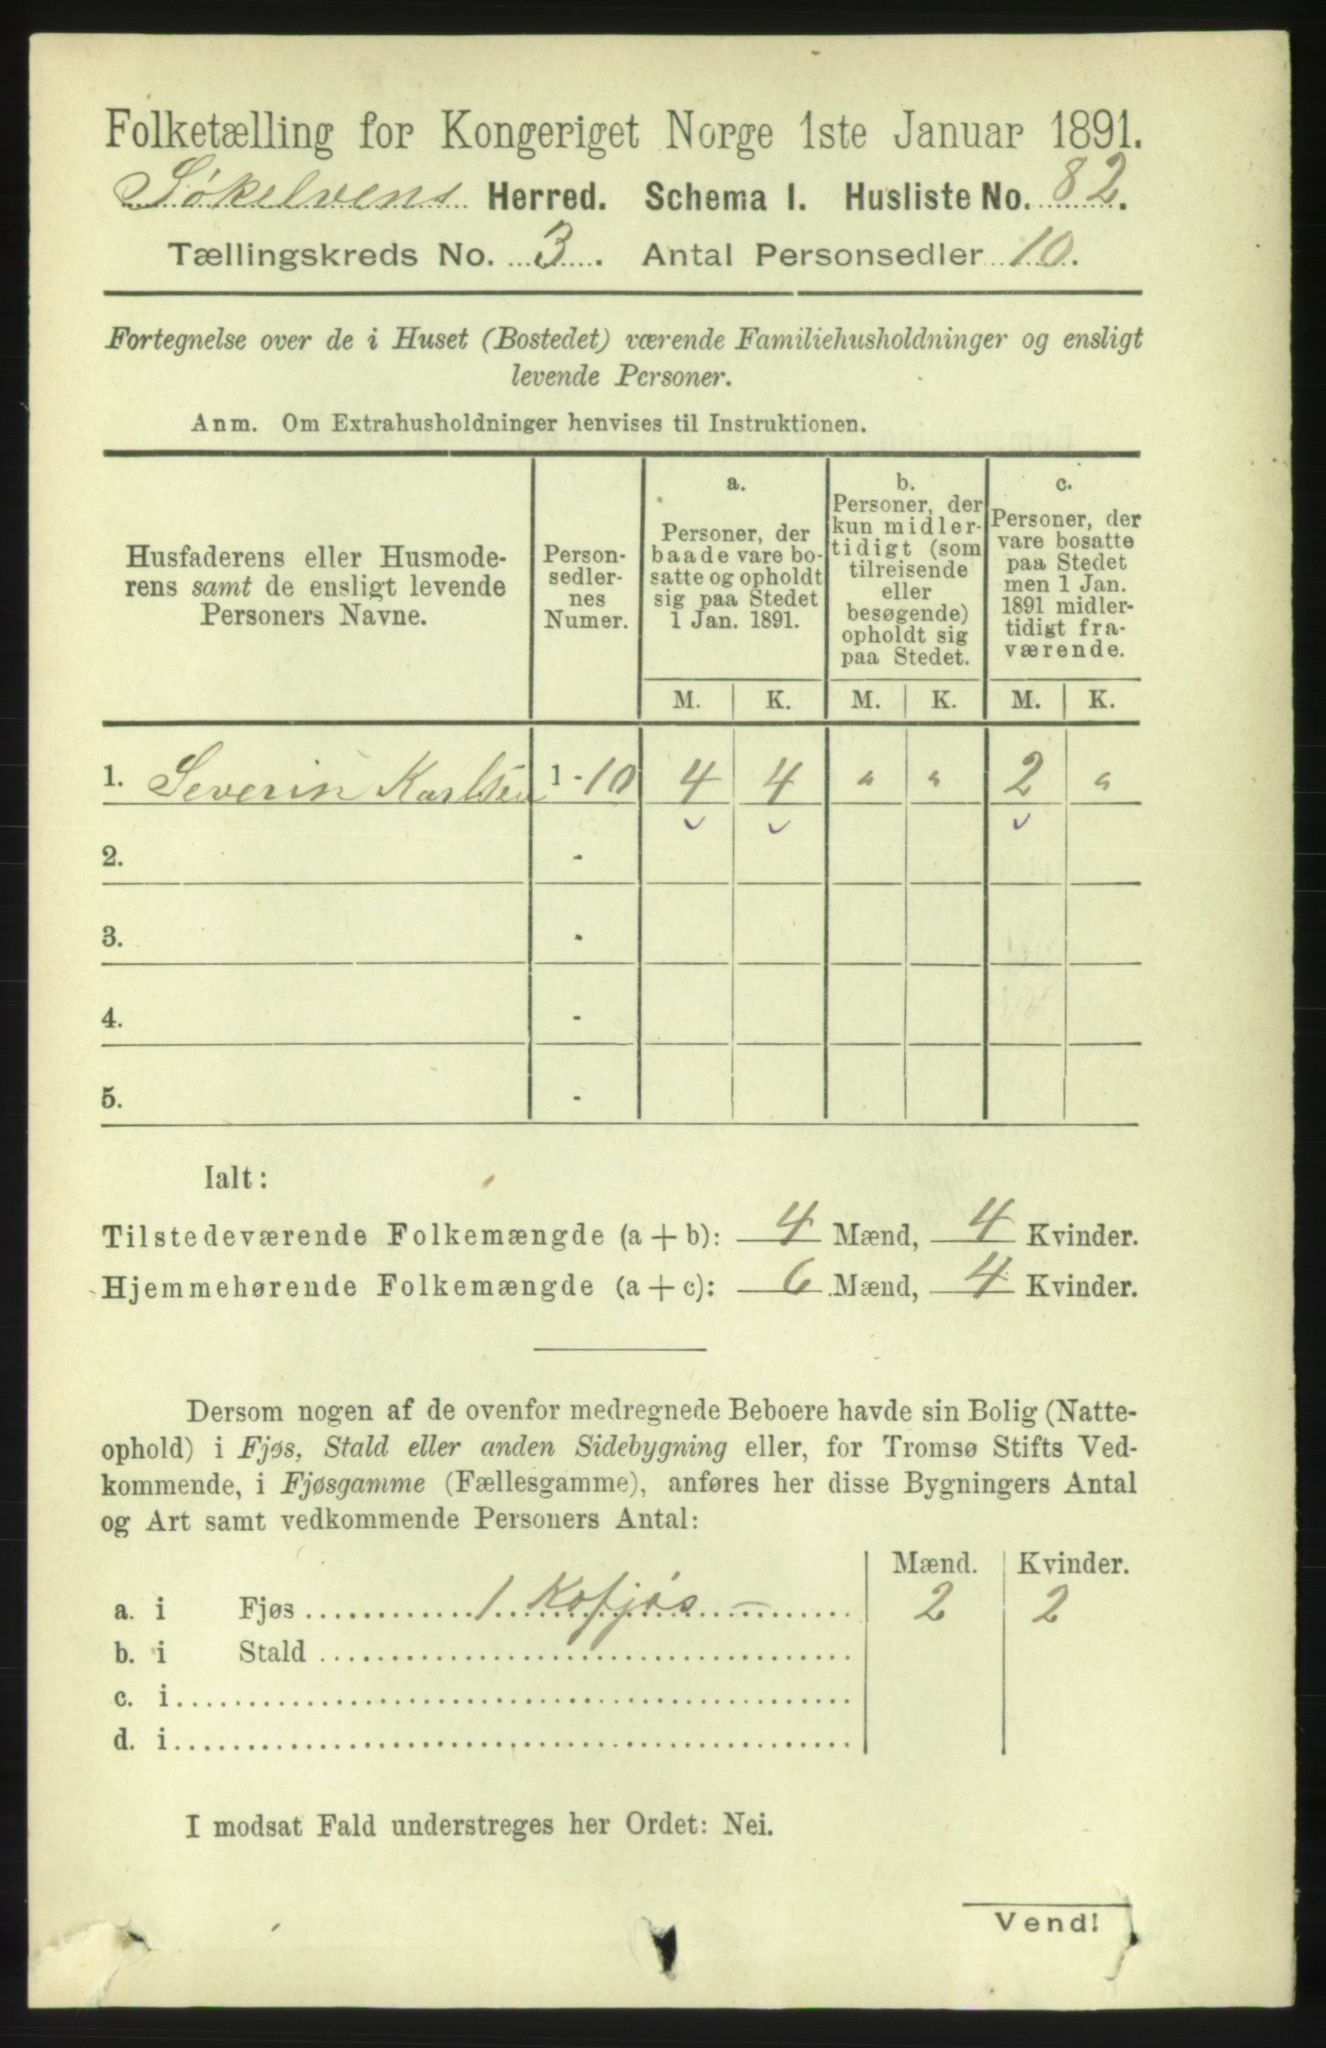 Folketælling for Kongeriget Norge 1ste Januar 1891.
Søkelvens Herred. Schema I. Husliste No. 82.
Tællingskreds No. 3. Antal Personsedler 10.
Fortegnelse over de i Huset (Bostedet) værende Familiehusholdninger og ensligt
levende Personer.
Anm. Om Extrahusholdninger henvises til Instruktionen.
Husfaderens eller Husmode-
rens samt de ensligt levende
Personers Navne.
Person-
sedler-
nes
Numer.
a.
Personer, der
baade vare bo-
satte og opholdt
sig paa Stedet
1 Jan. 1891.
b.
Personer, der
kun midler-
tidigt (som
tilreisende
eller
besøgende)
opholdt sig
paa Stedet.
c.
Personer, der
vare bosatte
paa Stedet
men 1 Jan.
1891 midler-
tidigt fra-
værende.
M. K. M. K. M. K.
1. Severin Karlsen 1-10 4 4 " " 2 "
2. -
3. -
4. -
5. -
Ialt:
Tilstedeværende Folkemængde (a+b): 4 Mænd, 4 Kvinder.
Hjemmehørende Folkemængde (a+c): 6 Mænd, 4 Kvinder.
Dersom nogen af de ovenfor medregnede Beboere havde sin Bolig (Natte-
ophold) i Fjøs, Stald eller anden Sidebygning eller, for Tromsø Stifts Ved-
kommende, i Fjøsgamme (Fællesgamme), anføres her disse Bygningers Antal
og Art samt vedkommende Personers Antal:
Mænd. Kvinder.
a. i Fjøs 1 Kofjøs - 2 2
b. i Stald
c. i
d. i
I modsat Fald understreges her Ordet: Nei.
Vend!